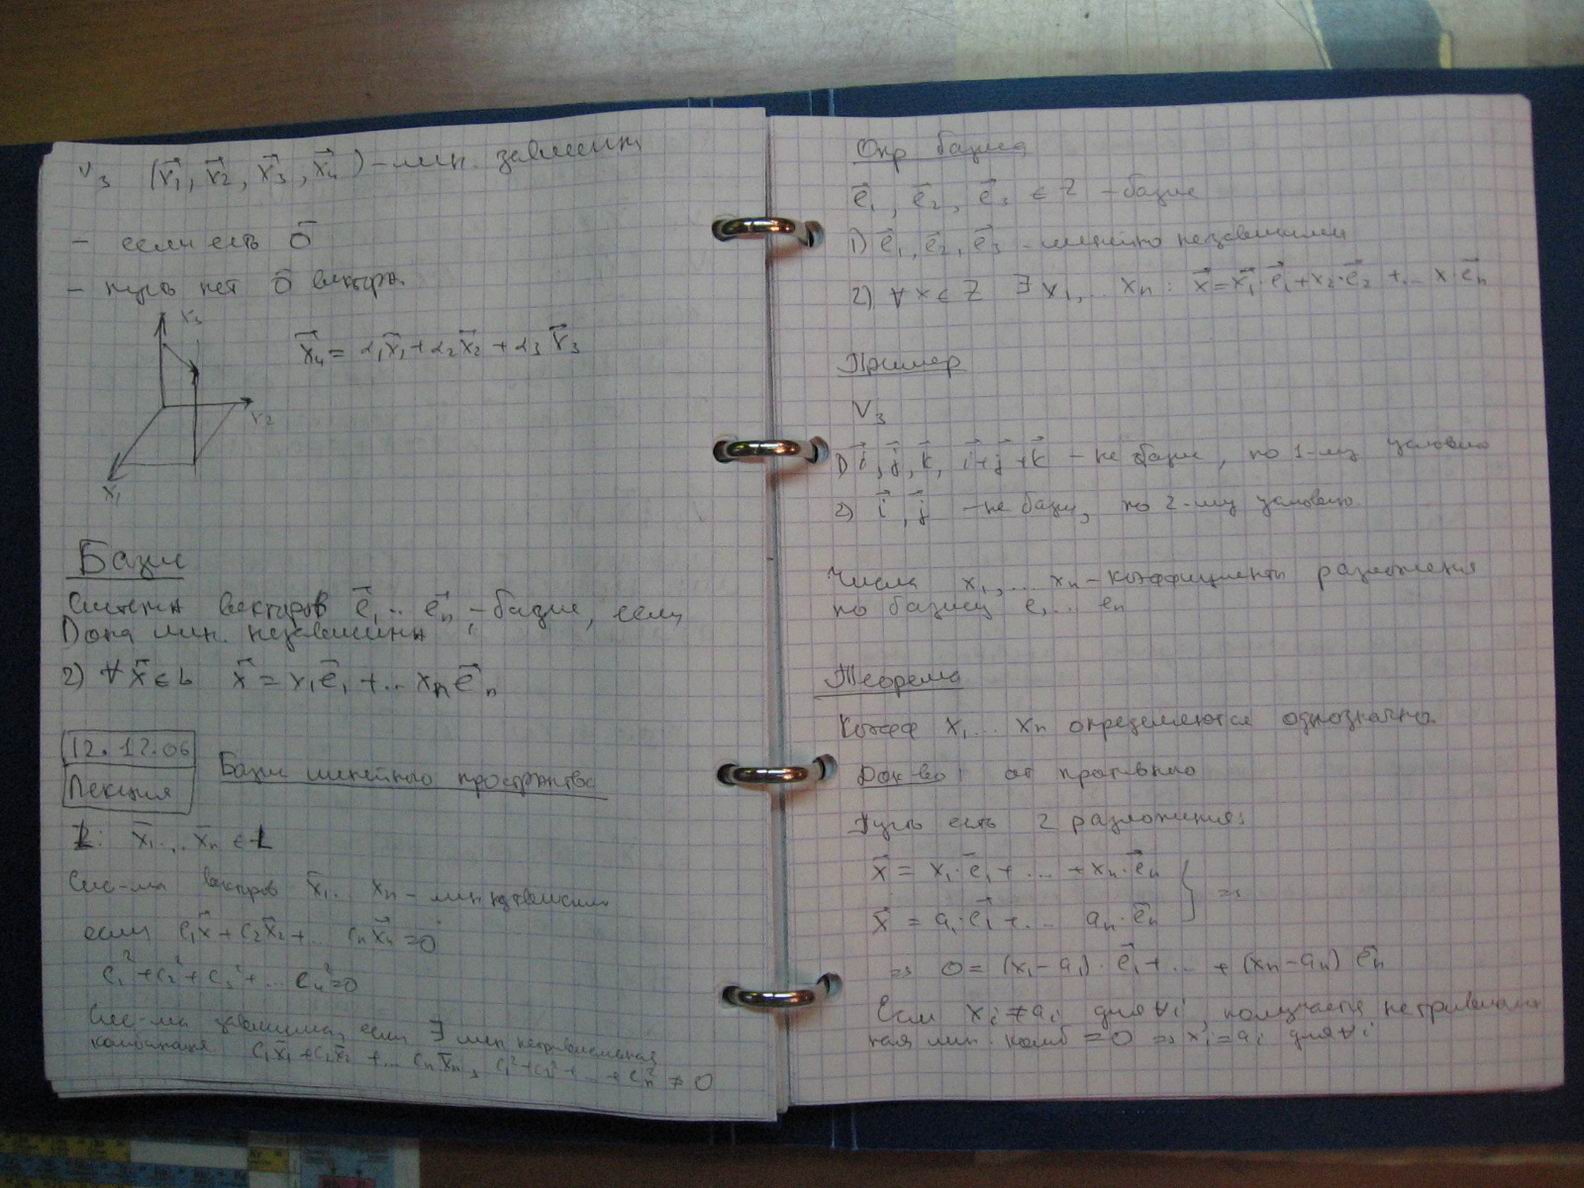 V₃ (x⃗₁, x⃗₂, x⃗₃, x⃗₄) – лин. зависим
– если есть 0⃗
– пусть нет 0⃗ вектора
x₃
x⃗₄ = α₁x⃗₁ + α₂x⃗₂ + α₃x⃗₃
x₂
x₁
Базис
Система векторов e⃗₁ .. e⃗ₙ – базис, если
1) она лин. независима
2) ∀ x⃗ ∈ L x⃗ = x₁e⃗₁ + .. xₙe⃗ₙ
12.12.06
Лекция
Базис линейного пространства
L: x̄₁ ... x̄ₙ ∈ L
Сис-ма векторов x̄₁.. xₙ – лин независим
если c₁x⃗ + c₂x⃗₂ + ... cₙx⃗ₙ = 0
c₁² + c₂² + c₃² + ... cₙ² = 0
Сис-ма зависима, если ∃ лин нетривиальная
комбинация c₁x̄₁ + c₂x̄₂ + ... cₙx̄ₙ, c₁² + c₂² + ... + cₙ² ≠ 0
Опр базиса
e⃗₁, e⃗₂, e⃗₃ ∈ Z – базис
1) e⃗₁, e⃗₂, e⃗₃ – линейно независимы
2) ∀ x ∈ Z ∃ x₁, .. xₙ : x⃗ = x⃗₁·e⃗₁ + x₂·e⃗₂ + ... x·e⃗ₙ
Пример
V₃
1) i⃗, j⃗, k⃗, i⃗+j⃗+k⃗ – не базис, по 1-му условию
2) i⃗, j⃗ – не базис, по 2-му условию
Числа x₁, ... xₙ – коэффициенты разложения
по базису e₁ ... eₙ
Теорема
Коэфф x₁ ... xₙ определяются однозначно
Док-во: от противного
Пусть есть 2 разложения:
x⃗ = x₁·e⃗₁ + ... + xₙ·e⃗ₙ
x⃗ = a₁·e⃗₁ + ... aₙ·e⃗ₙ } =>
=> 0 = (x₁ – a₁)·e⃗₁ + ... + (xₙ – aₙ) e⃗ₙ
Если xᵢ ≠ aᵢ для ∀i, получается нетривиаль
ная лин. комб = 0 => xᵢ = aᵢ для ∀i